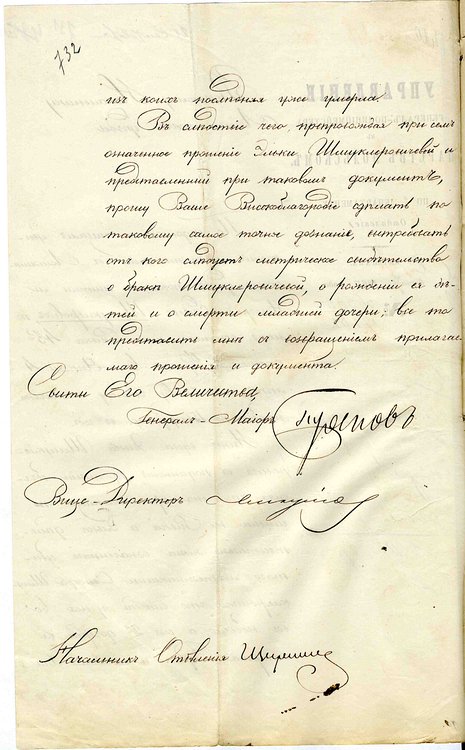 732
изъ коихъ послѣдняя уже умерла.
Въ слѣдствіе чего, препровождая при семъ
означенное прошеніе Эльки Шмуклеровичевой и
представленный при таковомъ документъ,
прошу Ваше Высокоблагородіе сдѣлать по
таковому самое точное дознаніе, вытребовать
отъ кого слѣдуетъ метрическое свидѣтельство
о бракѣ Шмуклеровичевой, о рожденіи ея дѣ-
тей и о смерти младшей дочери; все то
представить мнѣ съ возвращеніемъ прилагае-
маго прошенія и документа.
Свиты Его Величества,
Генералъ-Маіоръ
Вице-Директоръ
Начальникъ Отдѣленія